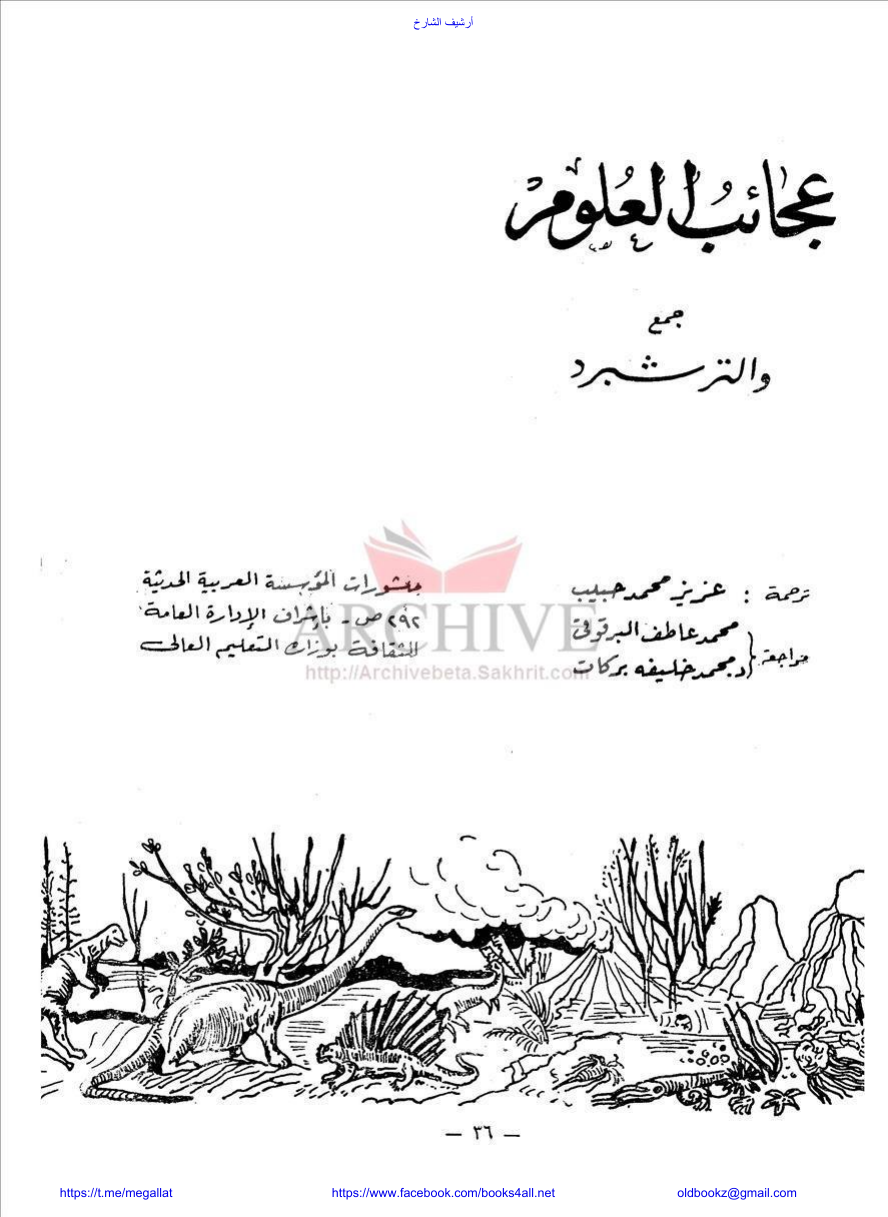 أرشيف الشارخ
عجائب العلوم
جمع
والتر شبرد
ترجمة : عزيز محمد حبيب
مراجعة { محمد عاطف البرقوقى
د. محمد خليفه بركات
منشورات المؤسسة العربية الحديثة
٢٩٢ ص - بإشراف الإدارة العامة
للثقافة بوزارة التعليم العالى
ARCHIVE
http://Archivebeta.Sakhrit.com
— ٣٦ —
https://t.me/megallat
https://www.facebook.com/books4all.net
oldbookz@gmail.com